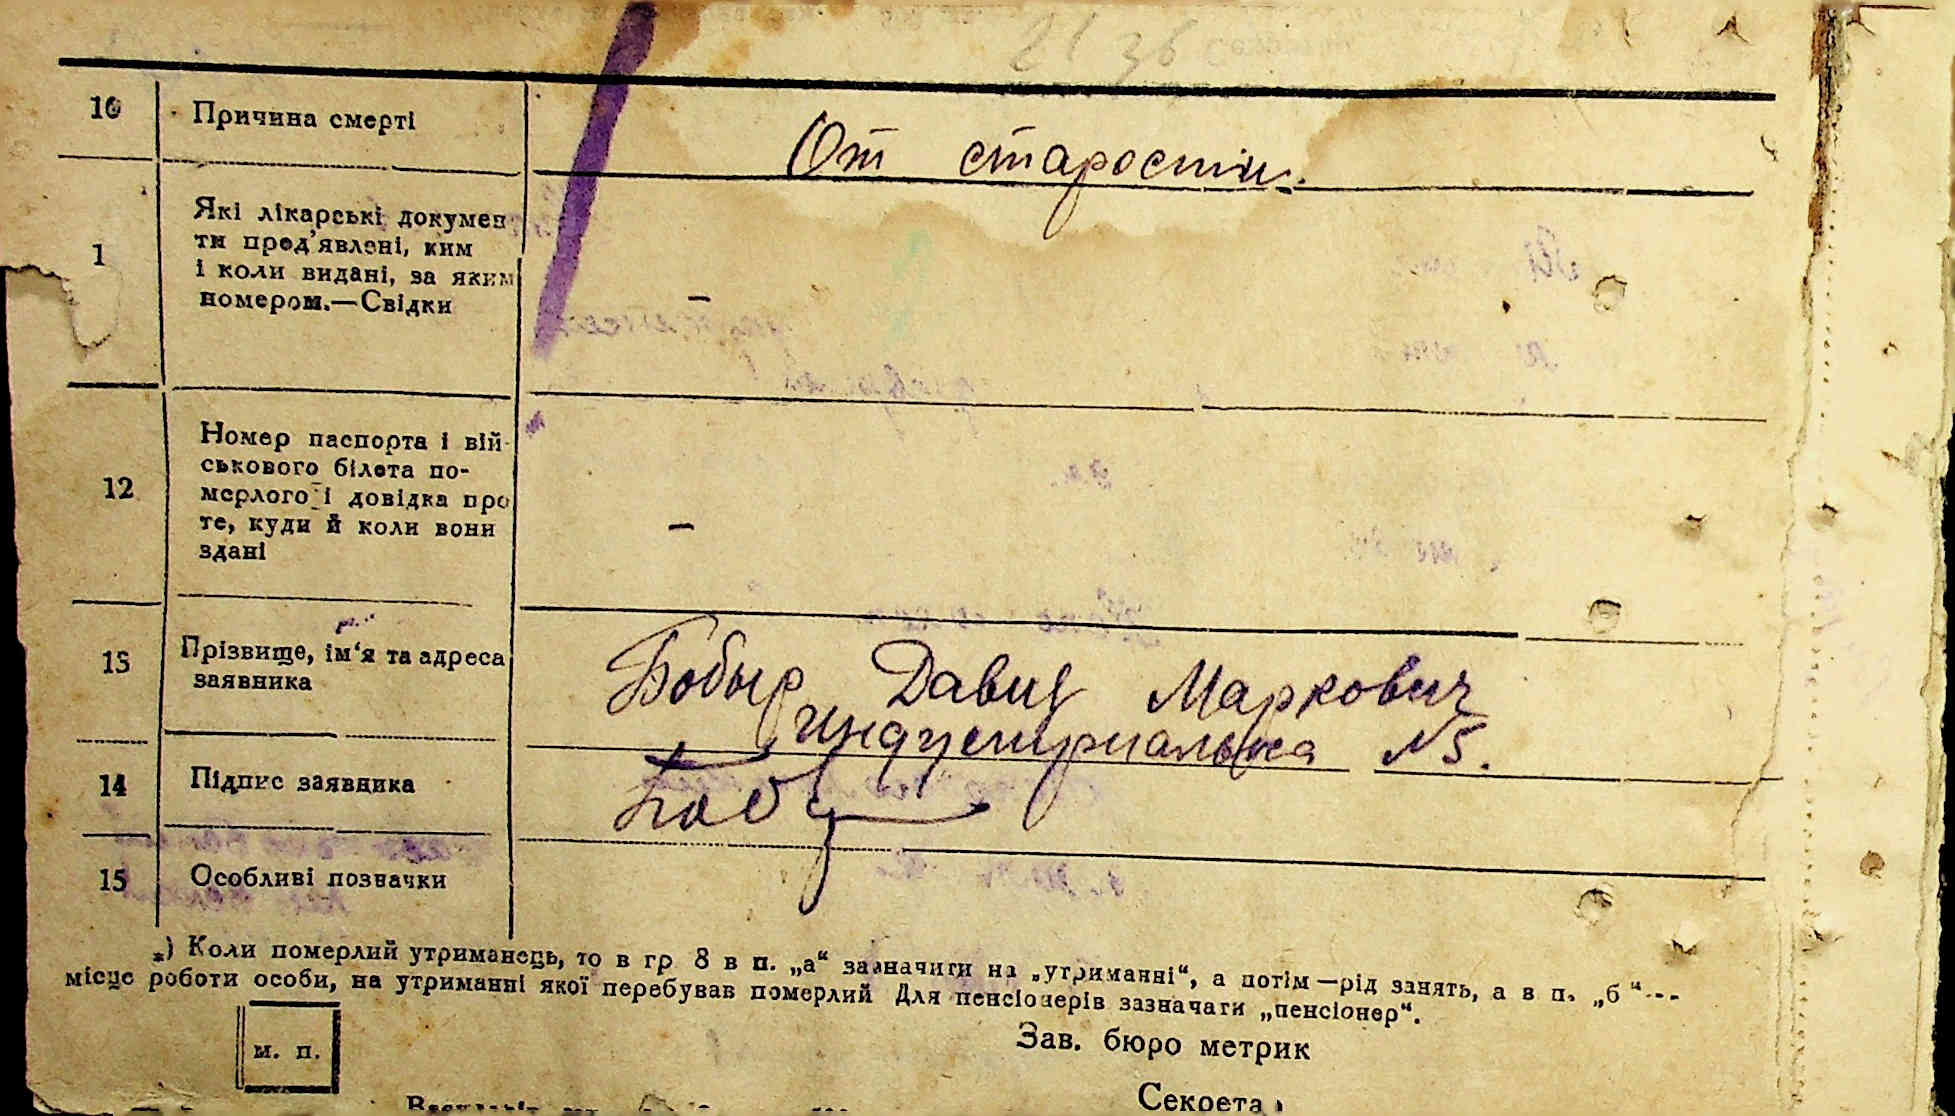 21 36
10 Причина смерті От старости.
1 Які лікарські докумен-
ти пред'явлені, ким
і коли видані, за яким
номером.—Свідки –
12 Номер паспорта і вій-
ськового білета по-
мерлого і довідка про
те, куди й коли вони
здані –
13 Прізвище, ім'я та адреса
заявника Бобыр Давид Маркович
индустриальная N5.
14 Підпис заявника
15 Особливі позначки
*) Коли померлий утриманець, то в гр 8 в п. „а“ зазначити на „утриманні“, а потім—рід занять, а в п. „б“---
місце роботи особи, на утриманні якої перебував померлий Для пенсіонерів зазначати „пенсіонер“.
м. п.
Зав. бюро метрик
Секрета